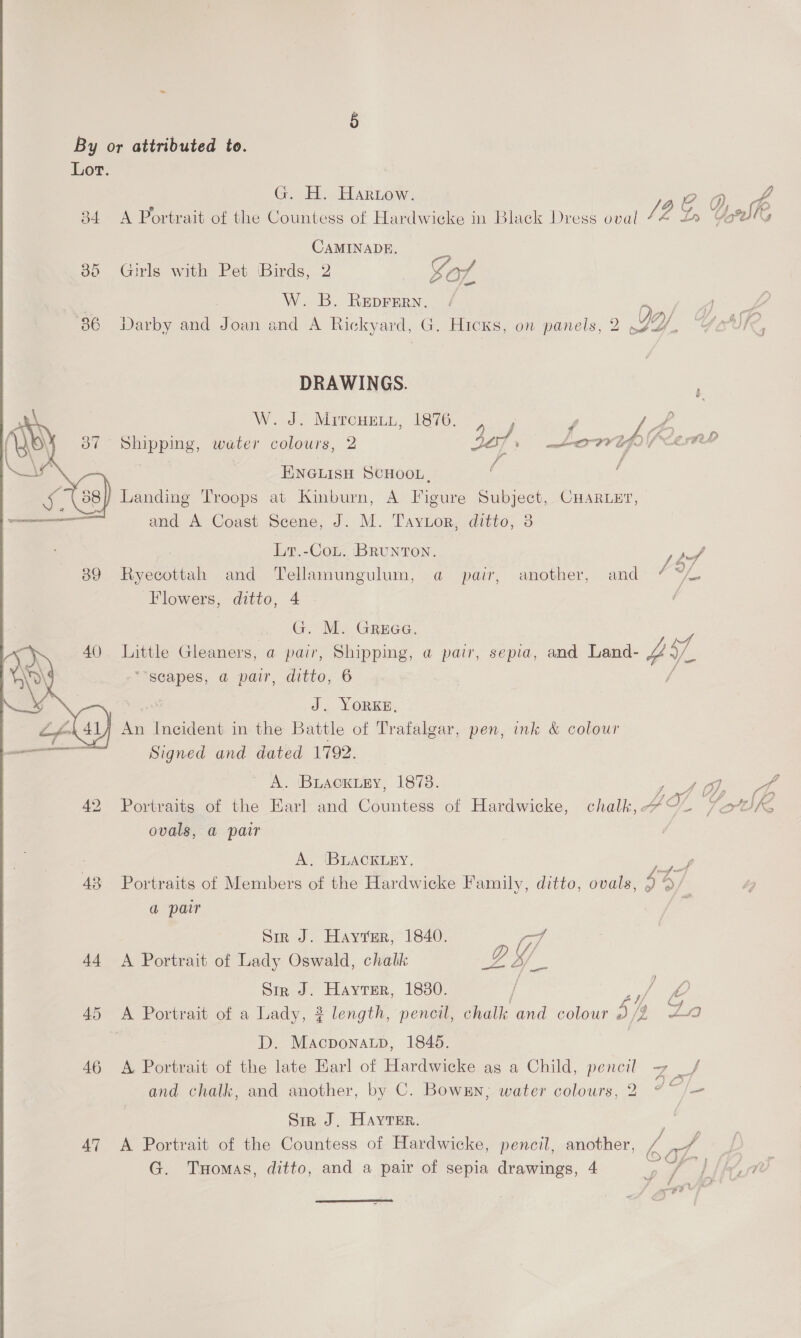 5
By or attributed to.
Lot.
G. H. Harlow.
34 A Portrait of the Countess of Hardwicke in Black Dress oval
Caminade.
35 Girls with Pet Birds, 2
W. B. Redfern.
36 Darby and Joan and A Rickyard, G. Hicks, on panels, 2
DRAWINGS.
W. J. Mitchell, 1876.
37 Shipping, water colours, 2
English School,
38 Landing Troops at Kinburn, A Figure Subject, Charlet,
and A Coast Scene, J. M. Taylor, ditto, 3
Lt.-Col. Brunton.
39 Ryecottah and Tellamungulum, a pair, another, and
Flowers, ditto, 4
G. M. Gregg.
40 Little Gleaners, a pair, Shipping, a pair, sepia, and Land-
scapes, a pair, ditto, 6
J. Yorke.
41 An Incident in the Battle of Trafalgar, pen, ink & colour
Signed and dated 1792.
A. Blackley, 1873.
42 Portraits of the Earl and Countess of Hardwicke, chalk,
ovals, a pair
A. Blackley.
43 Portraits of Members of the Hardwicke Family, ditto, ovals,
a pair
Sir J. Hayter, 1840.
44 A Portrait of Lady Oswald, chalk
Sir J. Hayter, 1830.
45 A Portrait of a Lady, ¾ length, pencil, chalk and colour
D. Macdonald, 1845.
46 A Portrait of the late Earl of Hardwicke as a Child, pencil
and chalk, and another, by C. Bowen, water colours, 2
Sir J. Hayter.
47 A Portrait of the Countess of Hardwicke, pencil, another,
G. Thomas, ditto, and a pair of sepia drawings, 4